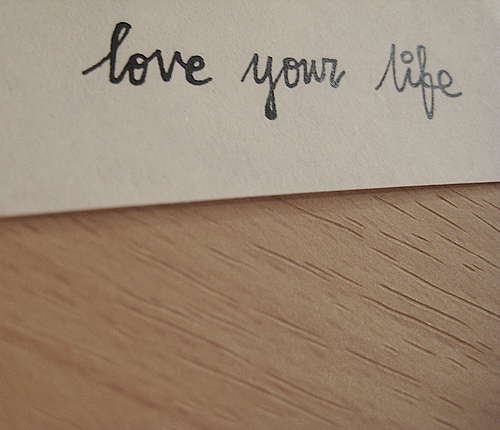 love your life